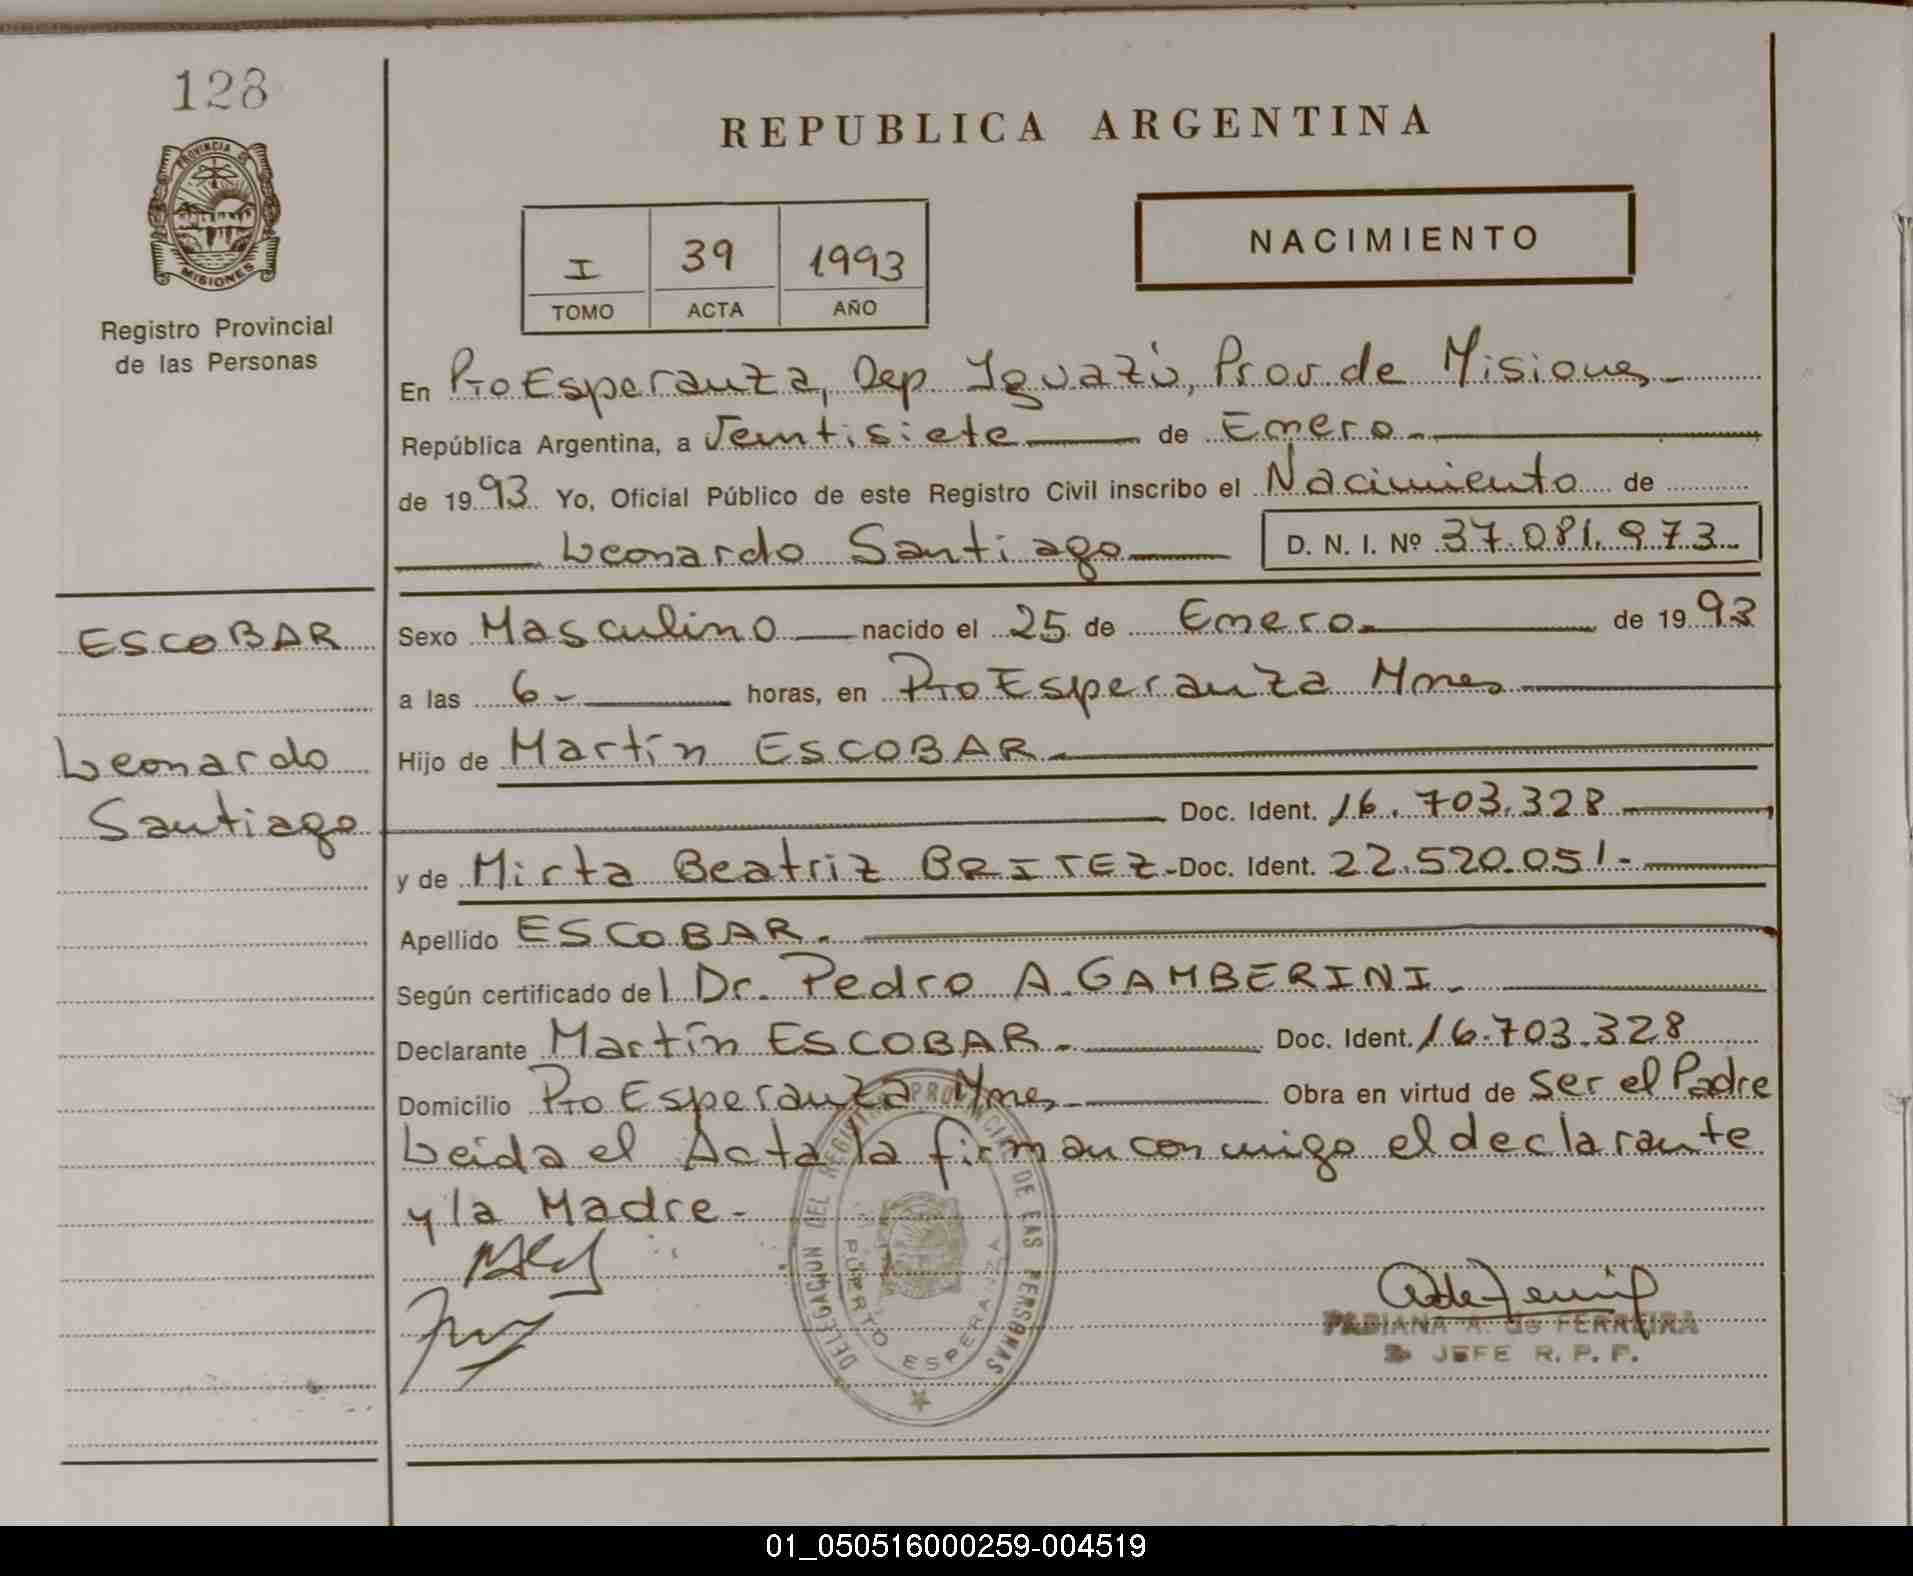 128
PROVINCIA DE
MISIONES
Registro Provincial
de las Personas
REPUBLICA ARGENTINA
I 39 1993
TOMO ACTA AÑO
NACIMIENTO
En Pto Esperanza, Dep Iguazú, Prov de Misiones
República Argentina, a Veintisiete de Enero
de 1993 Yo, Oficial Público de este Registro Civil inscribo el Nacimiento de
Leonardo Santiago D. N. I. Nº 37.081.973
ESCOBAR
Leonardo
Santiago
Sexo Masculino nacido el 25 de Enero de 1993
a las 6 horas, en Pto Esperanza Mnes
Hijo de Martín ESCOBAR
Doc. Ident. 16.703.328
y de Mirta Beatriz BRITEZ - Doc. Ident. 22.520.051
Apellido ESCOBAR.
Según certificado del Dr. Pedro A. GAMBERINI
Declarante Martín ESCOBAR. Doc. Ident. 16.703.328
Domicilio Pto Esperanza Mnes Obra en virtud de Ser el Padre
Leída el Acta la firman conmigo el declarante
y la Madre-
DELEGACION DEL REGISTRO PROVINCIAL DE LAS PERSONAS
PUERTO ESPERANZA
FABIANA A. de FERREIRA
JEFE R. P. P.
01_050516000259-004519